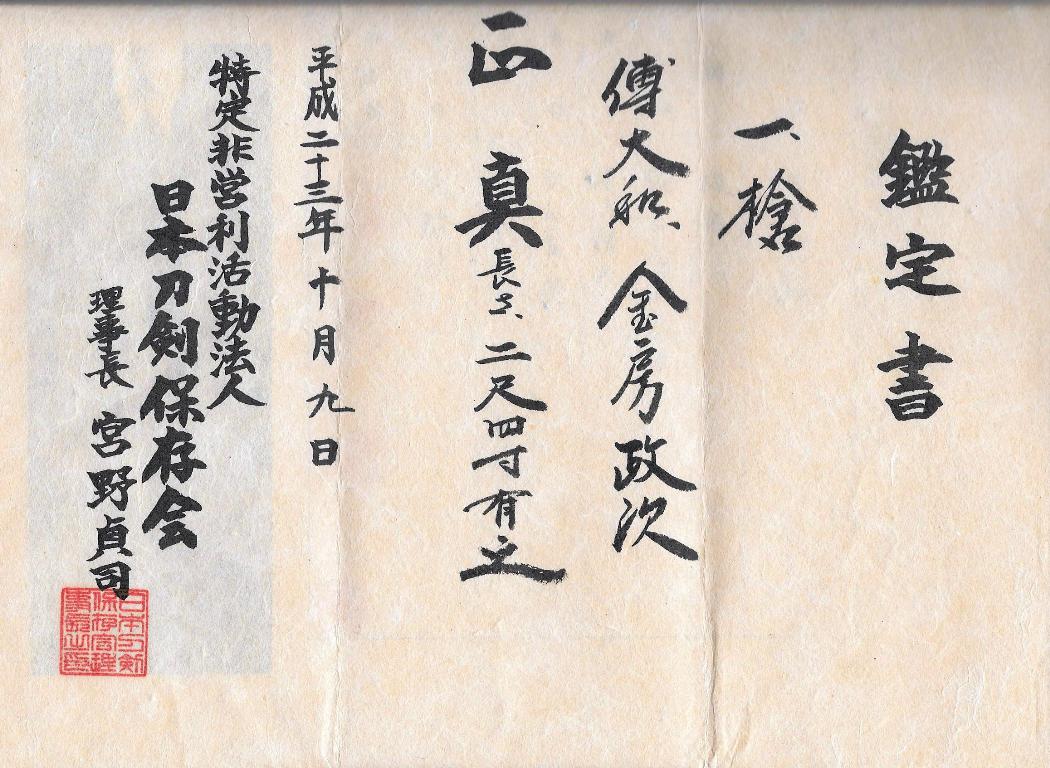 鑑定書
一、槍
傳大和、金房政次
正真
長さ、二尺四寸有之
平成二十三年十月九日
特定非営利活動法人
日本刀剣保存会
理事長 宮野貞司
日本刀剣
保存会理
事長之印